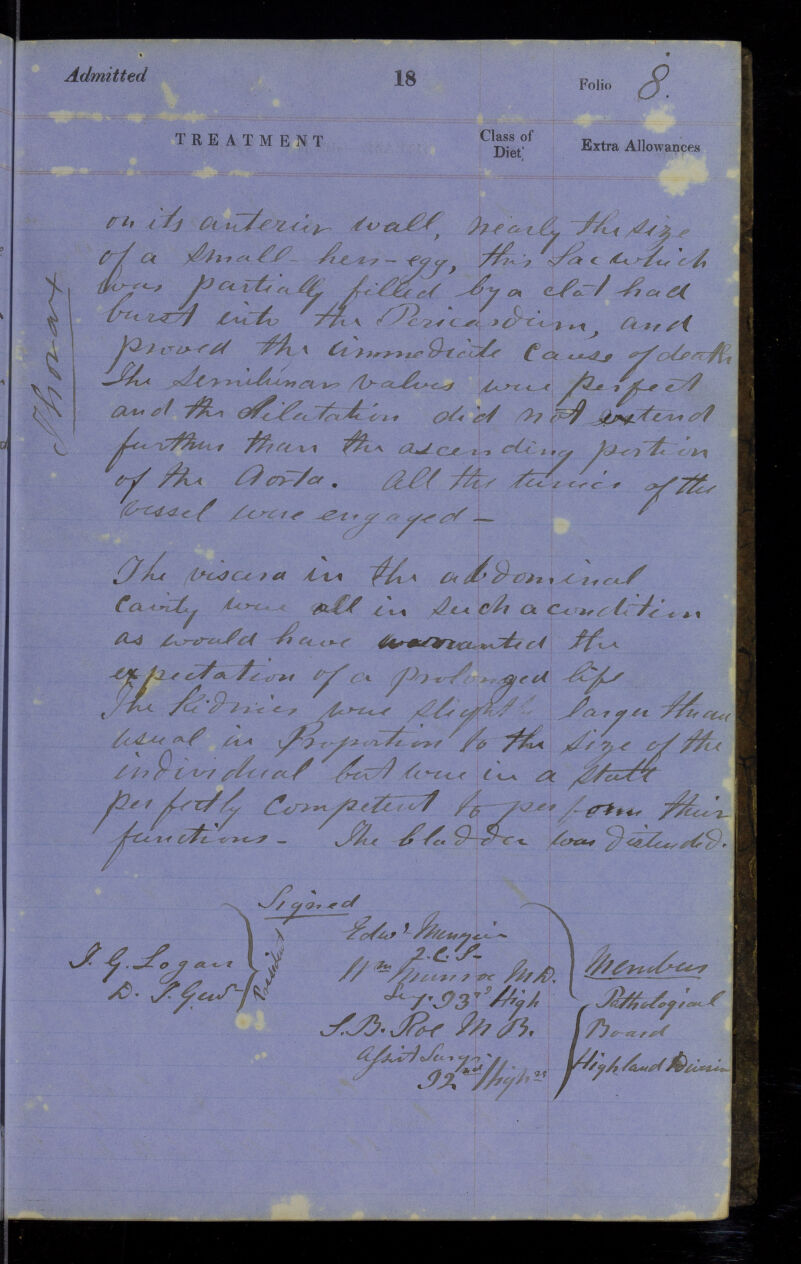 Admitted 18 Folio 8.
TREATMENT Class of Diet Extra Allowances
Thorax
on its anterior wall, nearly the size
of a small hen-egg, this Sac which
was partially filled by a clot had
burst into the Pericardium, and
proved the immediate cause of death
The semilunar valves were perfect
and the dilatation did not extend
further than the ascending portion
of the Aorta. All the tunics of the
vessel were engaged -
The viscera in the abdominal
Cavity were all in such a condition
as would have warranted the
expectation of a prolonged life
The Kidnies were slightly larger than
usual in Proportion to the size of the
individual but were in a state
perfectly competent to perform their
functions - The bladder was distended.
Signed
T. G. Logan
D. I. Genl
President
Edwd
Wm Munroe MD.
Surg. 93rd High
S. B. Roe M B.
Assist Surgn
92nd Highrs
Members
Pathological
Board
Highland Division